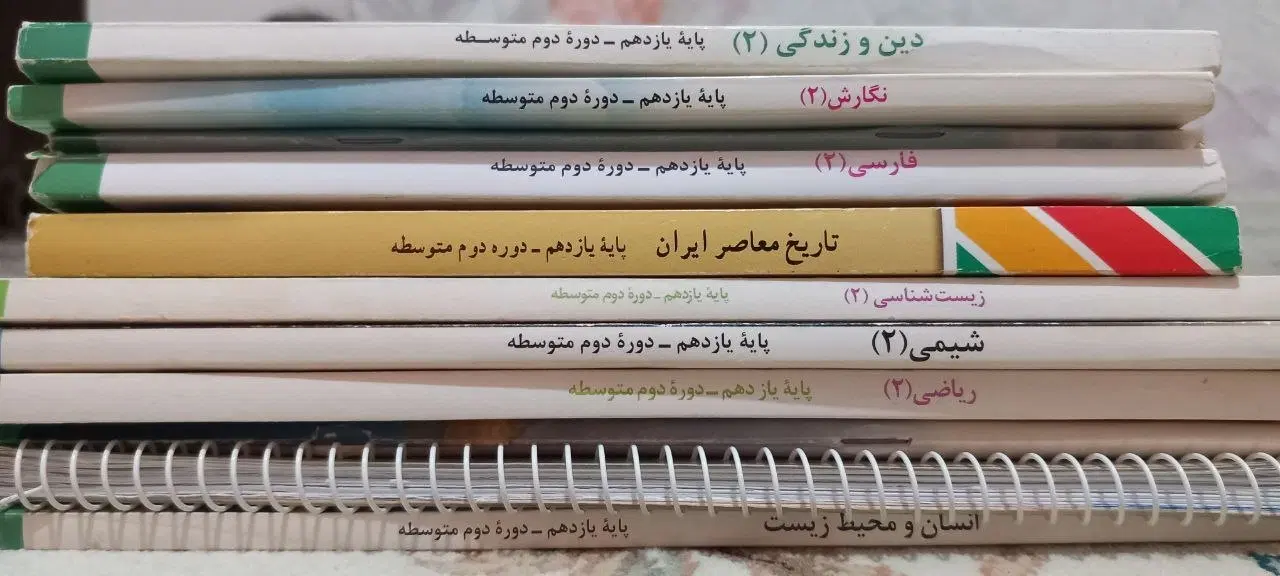 دین و زندگی (۲) پایهٔ یازدهم ــ دورهٔ دوم متوسطه
نگارش(۲) پایهٔ یازدهم ــ دورهٔ دوم متوسطه
فارسی(۲) پایهٔ یازدهم ــ دورهٔ دوم متوسطه
تاریخ معاصر ایران پایهٔ یازدهم ــ دوره دوم متوسطه
زیست‌شناسی (۲) پایهٔ یازدهم ــ دورهٔ دوم متوسطه
شیمی(۲) پایهٔ یازدهم ــ دورهٔ دوم متوسطه
ریاضی(۲) پایهٔ یازدهم ــ دورهٔ دوم متوسطه
انسان و محیط زیست پایهٔ یازدهم ــ دورهٔ دوم متوسطه